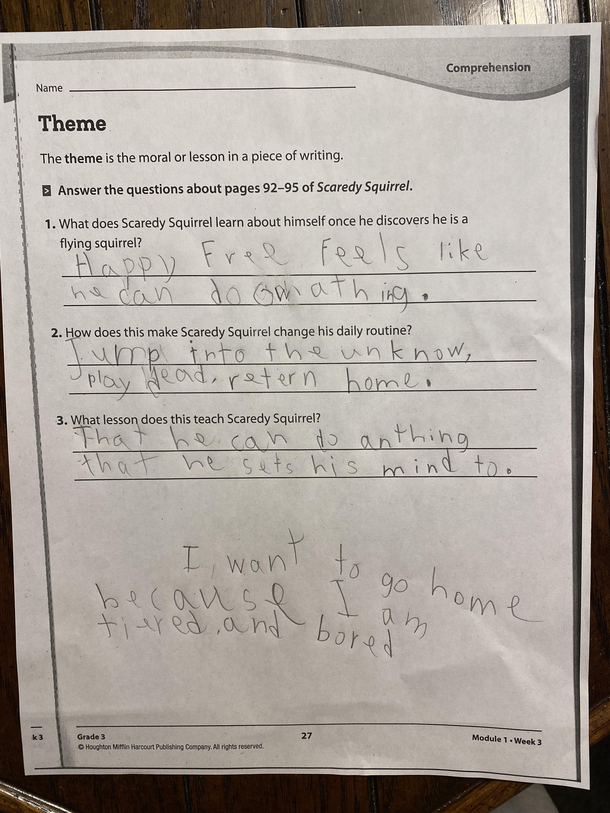 Comprehension
Name
Theme
The theme is the moral or lesson in a piece of writing.
Answer the questions about pages 92–95 of Scaredy Squirrel.
1. What does Scaredy Squirrel learn about himself once he discovers he is a
flying squirrel?
Happy Free Feels like
he can do
2. How does this make Scaredy Squirrel change his daily routine?
Jump into the unknow,
play dead, retern home.
3. What lesson does this teach Scaredy Squirrel?
That he can do anthing
that he sets his mind to.
I want to go home
because I am
tiered, and bored
k 3
Grade 3
© Houghton Mifflin Harcourt Publishing Company. All rights reserved.
27
Module 1 • Week 3